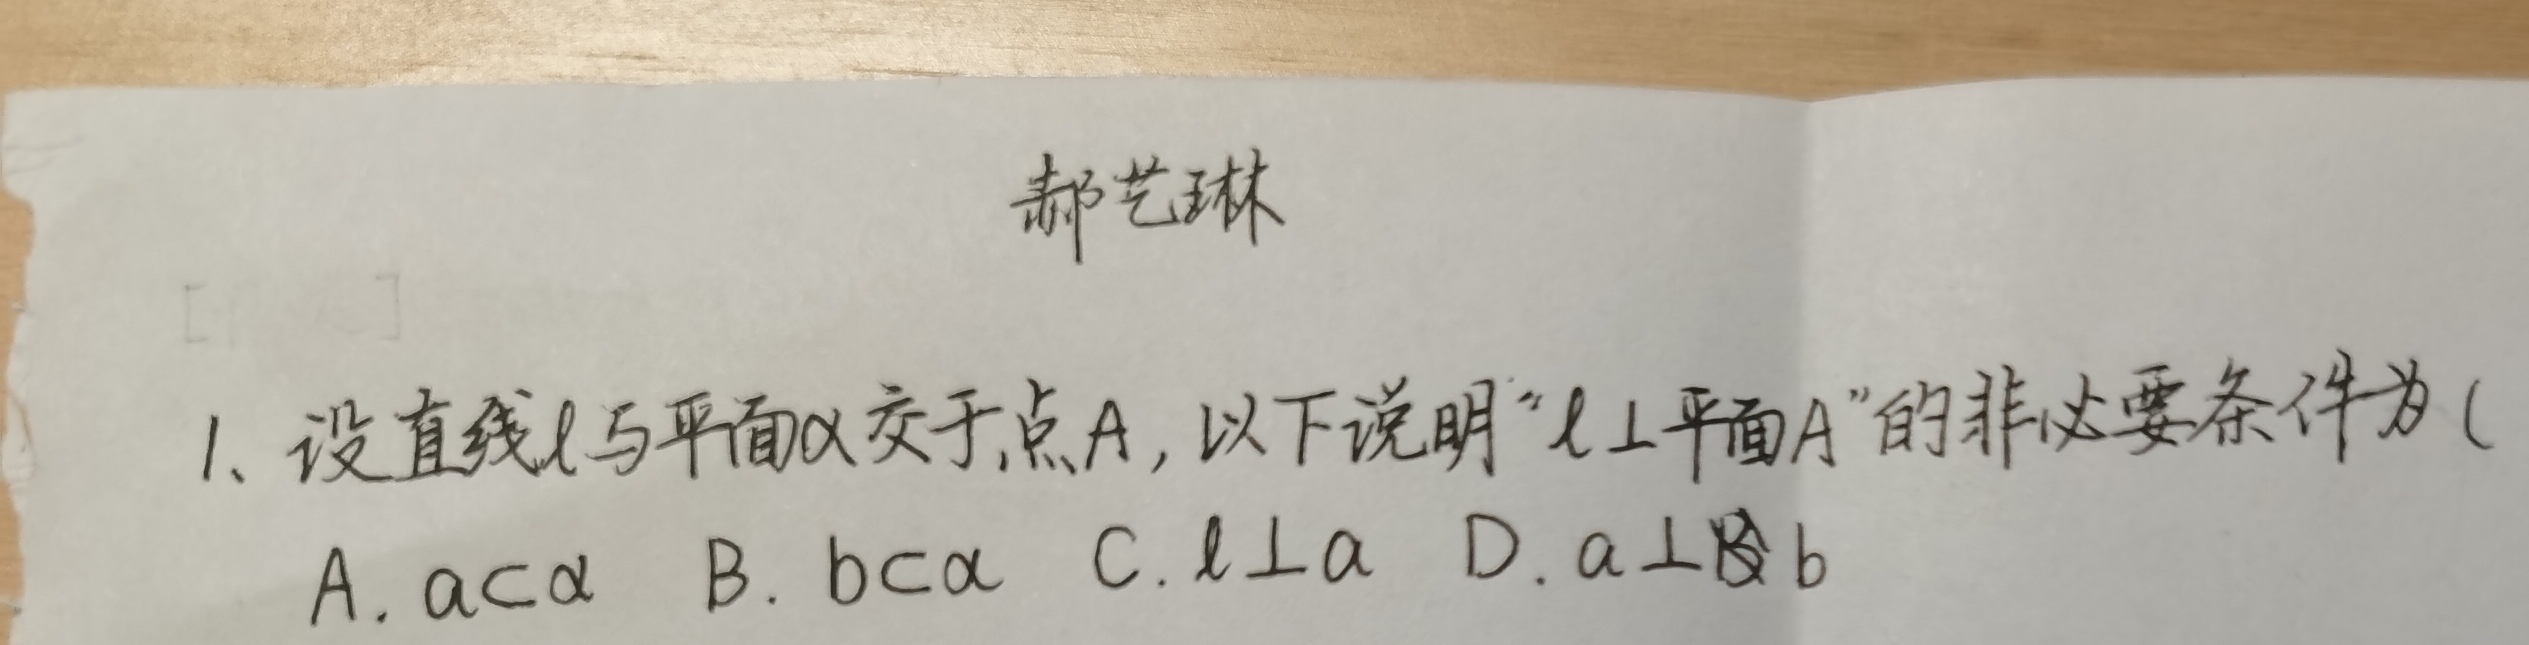 郝艺琳
[ ]
1、设直线l与平面α交于点A,以下说明“l⊥平面A”的非必要条件为(
A. a⊂α B. b⊂α C. l⊥a D. a⊥b